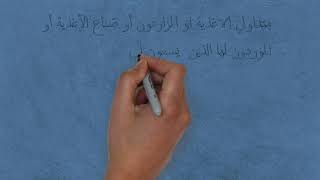 متداولي الأغذية او المزارعون أو صناع الأغذية أو
الموردون لها الذين يسمون